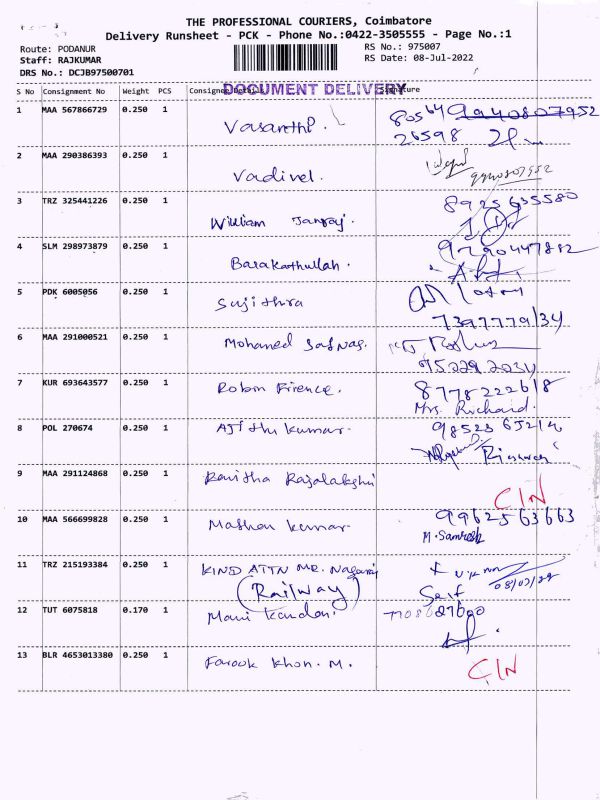 THE PROFESSIONAL COURIERS, Coimbatore
Delivery Runsheet - PCK - Phone No.:0422-3505555 - Page No.:1
Route: PODANUR
RS No.: 975007
Staff: RAJKUMAR
RS Date: 08-Jul-2022
DRS No.: DCJB97500701
DOCUMENT DELIVERY
S No Consignment No Weight PCS Consignee Details Signature
1 MAA 567866729 0.250 1 Vasanthi. 80564 9940807952
26598
2 MAA 290386393 0.250 1 Vadivel. 9940807952
3 TRZ 325441226 0.250 1 William Janraj. 8925635580
4 SLM 298973879 0.250 1 Barakathullah. 9790447882
5 PDK 6005056 0.250 1 Sujithra
7397779134
6 MAA 291000521 0.250 1 Mohamed
7 KUR 693643577 0.250 1 Robin 8778222618
Mrs. Richard.
8 POL 270674 0.250 1 Ajith kumar-
9 MAA 291124868 0.250 1 Kavitha Rajalakshmi
CIN
10 MAA 566699828 0.250 1 Mathan kumar- 9962563663
M. Santosh
11 TRZ 215193384 0.250 1 KIND ATTN MR. Nagaraj
(Railway) Self 08/07/22
12 TUT 6075818 0.170 1 Mani kandan.
13 BLR 4653013380 0.250 1 Farook khan. M. CIN